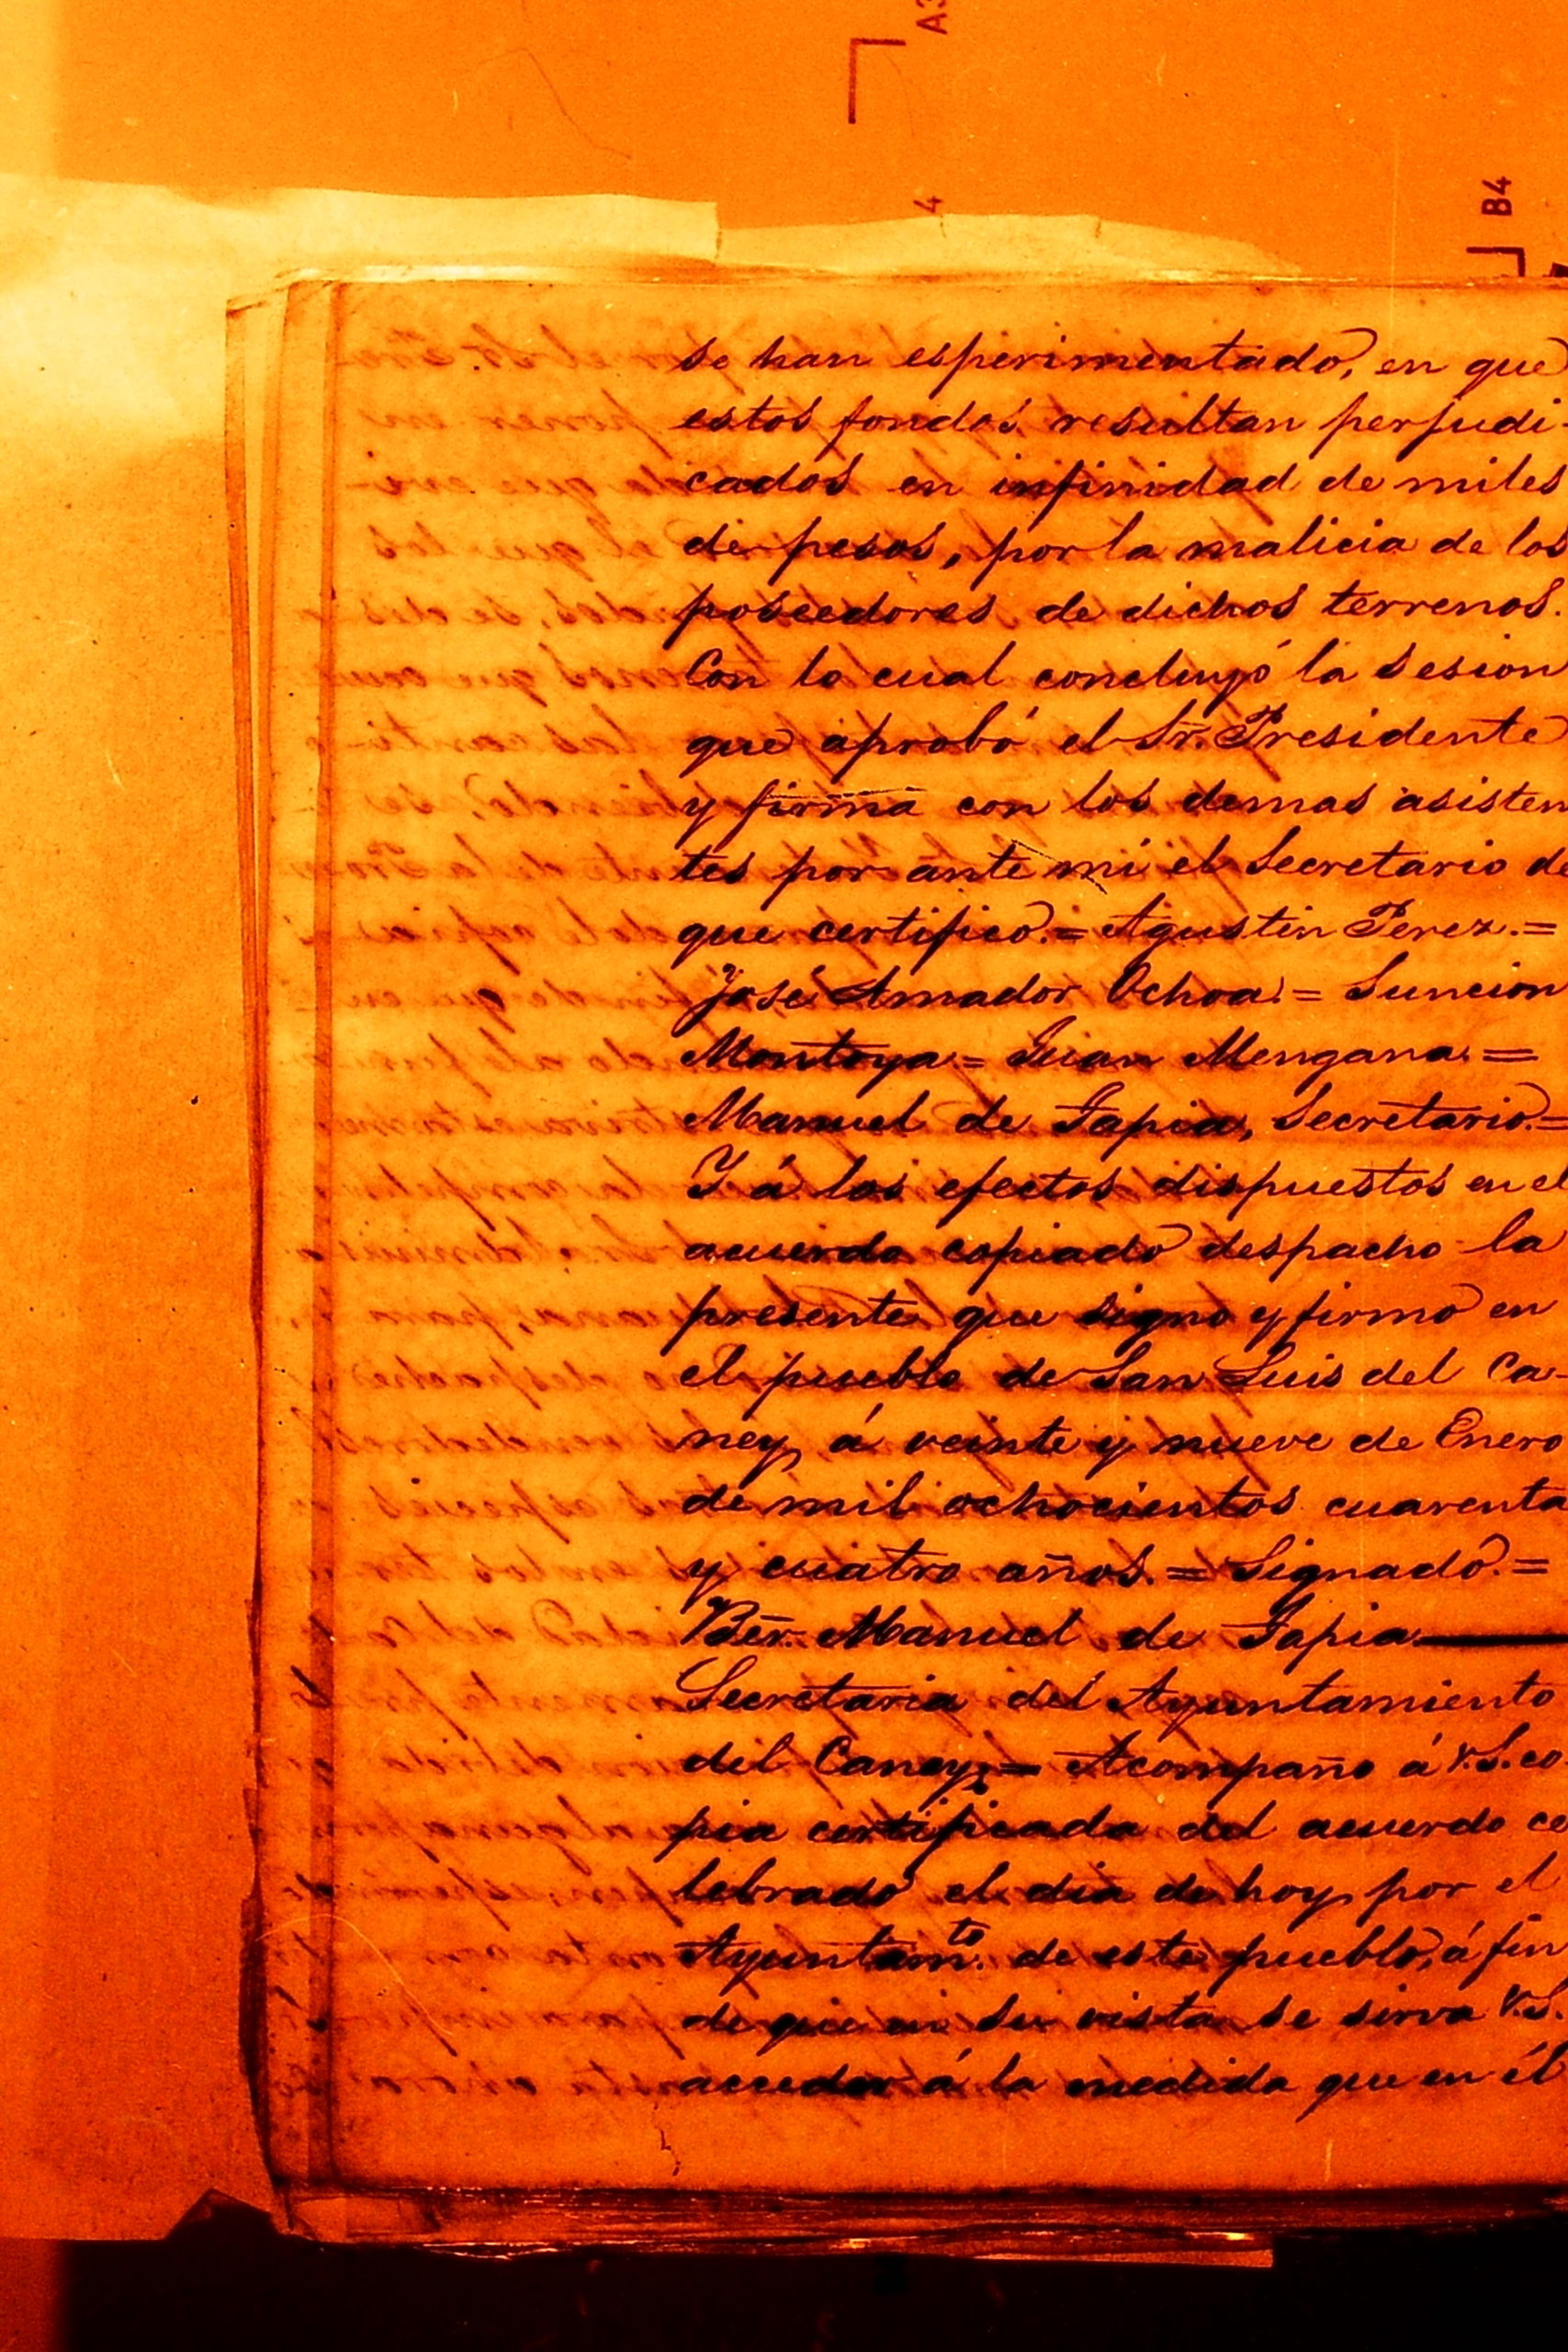 A3
4
B4
se han esperimentado, en que
estos fondos resultan perjudi-
cados en infinidad de miles
de pesos, por la malicia de los
poseedores de dichos terrenos.
Con lo cual concluyó la sesion
que aprobó el Sr. Presidente
y firma con los demas asisten
tes por ante mí el Secretario de
que certifico. = Agustin Perez. =
José Amador Ochoa. = Suncion
Montoya = Juan Mengana. =
Manuel de Tapia, Secretario. =
Y á los efectos dispuestos en el
acuerdo copiado despacho la
presente que signo y firmo en
el pueblo de San Luis del Ca-
ney, á veinte y nueve de Enero
de mil ochocientos cuarenta
y cuatro años. = Signado. =
Bėr. Manuel de Tapia
Secretaria del Ayuntamiento
del Caney. = Acompaño á V.S. co
pia certificada del acuerdo ce
lebrado el dia de hoy por el
Ayuntamto. de este pueblo, á fin
de que en su vista se sirva V.S.
acceder á la medida que en él